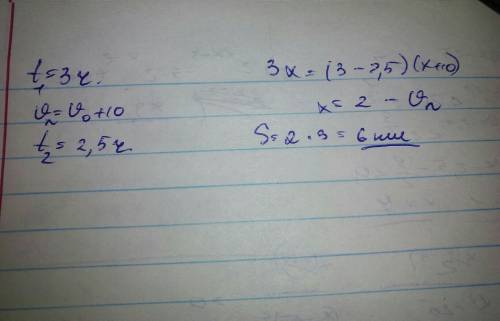 t₁=3ч.
υₙ=υ₀+10
t₂=2,5ч
3x=(3-2,5)(x+10)
x=2-υₙ
S=2·3=6км